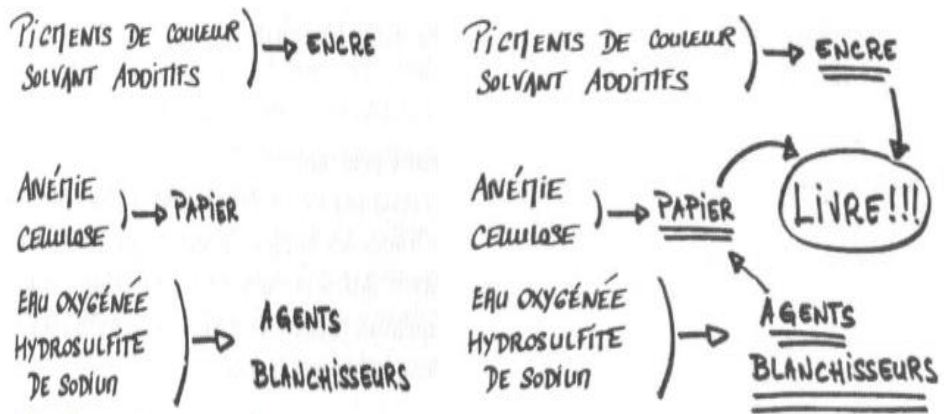 PIGMENTS DE COULEUR
SOLVANT ADDITIFS
→ ENCRE
ANÉMIE
CELLULOSE
→ PAPIER
EAU OXYGÉNÉE
HYDROSULFITE
DE SODIUM
→ AGENTS
BLANCHISSEURS
PIGMENTS DE COULEUR
SOLVANT ADDITIFS
→ ENCRE
LIVRE!!!
ANÉMIE
CELLULOSE
→ PAPIER
EAU OXYGÉNÉE
HYDROSULFITE
DE SODIUM
→ AGENTS
BLANCHISSEURS